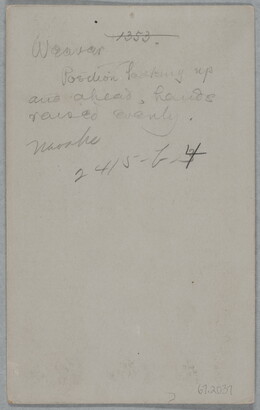 1353.
Weaver
Position looking up
and ahead, hands
raised evenly.
Navaho
2415-b-4
67.2037